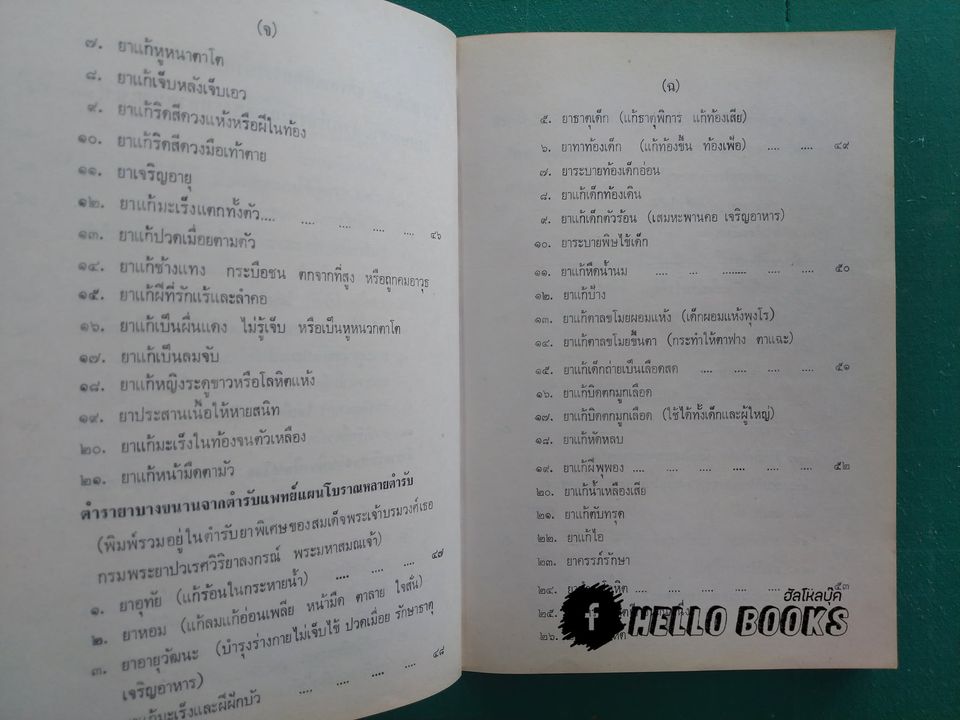 (จ)
๗. ยาแก้หูหนาตาโต
๘. ยาแก้เจ็บหลังเจ็บเอว
๙. ยาแก้ริดสีดวงแห้งหรือฝีในท้อง
๑๐. ยาแก้ริดสีดวงมือเท้าตาย
๑๑. ยาเจริญอายุ
๑๒. ยาแก้มะเร็งแตกทั้งตัว.... .... .... .... .... ๔๖
๑๓. ยาแก้ปวดเมื่อยตามตัว
๑๔. ยาแก้ช้างแทง กระบือชน ตกจากที่สูง หรือถูกคมอาวุธ
๑๕. ยาแก้ฝีที่รักแร้และลำคอ
๑๖. ยาแก้เป็นผื่นแดง ไม่รู้เจ็บ หรือเป็นหูหนวกตาโต
๑๗. ยาแก้เป็นลมจับ
๑๘. ยาแก้หญิงระดูขาวหรือโลหิตแห้ง
๑๙. ยาประสานเนื้อให้หายสนิท
๒๐. ยาแก้มะเร็งในท้องจนตัวเหลือง
๒๑. ยาแก้หน้ามืดตามัว
ตำรายาบางขนานจากตำรับแพทย์แผนโบราณหลายตำรับ
(พิมพ์รวมอยู่ในตำรับยาพิเศษของสมเด็จพระเจ้าบรมวงศ์เธอ
กรมพระยาปวเรศวิริยาลงกรณ์ พระมหาสมณเจ้า)
๑. ยาอุทัย (แก้ร้อนในกระหายน้ำ) .... .... .... ๔๗
๒. ยาหอม (แก้ลมแก้อ่อนเพลีย หน้ามืด ตาลาย ใจสั่น)
๓. ยาอายุวัฒนะ (บำรุงร่างกายไม่เจ็บไข้ ปวดเมื่อย รักษาธาตุ
เจริญอาหาร) .... .... .... .... ๔๘
ยาแก้มะเร็งและฝีฝักบัว
(ฉ)
๕. ยาธาตุเด็ก (แก้ธาตุพิการ แก้ท้องเสีย)
๖. ยาทาท้องเด็ก (แก้ท้องขึ้น ท้องเฟ้อ) .... .... ๔๙
๗. ยาระบายท้องเด็กอ่อน
๘. ยาแก้เด็กท้องเดิน
๙. ยาแก้เด็กตัวร้อน (เสมหะพานคอ เจริญอาหาร)
๑๐. ยาระบายพิษไข้เด็ก
๑๑. ยาแก้หืดน้ำนม .... ... ........ .... .... ๕๐
๑๒. ยาแก้ป้าง
๑๓. ยาแก้ตาลขโมยผอมแห้ง (เด็กผอมแห้งพุงโร)
๑๔. ยาแก้ตาลขโมยขึ้นตา (กระทำให้ตาฟาง ตาแฉะ)
๑๕. ยาแก้เด็กถ่ายเป็นเลือดสด .... .... .... .... ๕๑
๑๖. ยาแก้บิดตกมูกเลือด
๑๗. ยาแก้บิดตกมูกเลือด (ใช้ได้ทั้งเด็กและผู้ใหญ่)
๑๘. ยาแก้หัดหลบ
๑๙. ยาแก้ฝีพุพอง .... .... .... .... .... .... ๕๒
๒๐. ยาแก้น้ำเหลืองเสีย
๒๑. ยาแก้ตับทรุด
๒๒. ยาแก้ไอ
๒๓. ยาครรภ์รักษา
๒๔. .... .... .... .... ๕๓
๒๕.
๒๖.
ฮัลโหลบุ๊ค
f HELLO BOOKS